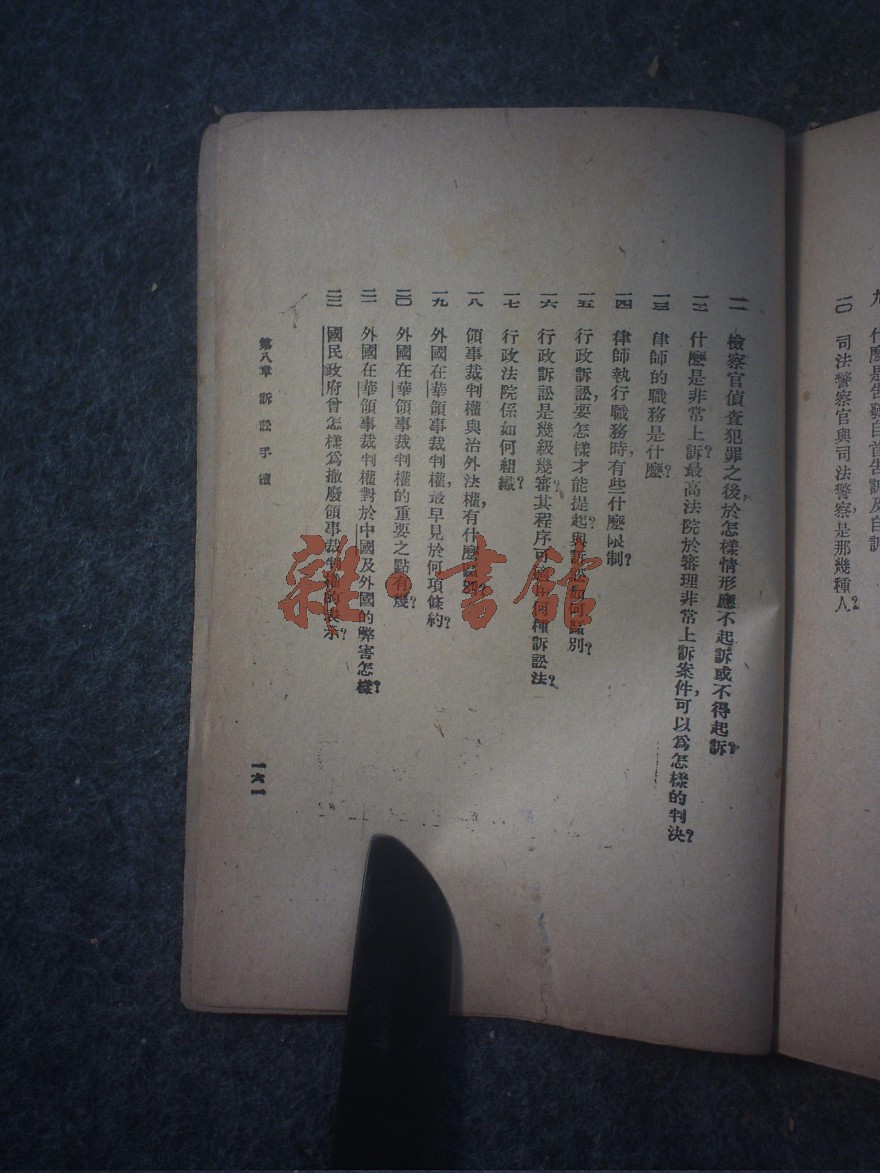 九 什麼是告發自首告訴及自訴
一〇 司法警察官與司法警察是那幾種人？
一一 檢察官偵查犯罪之後，於怎樣情形應不起訴或不得起訴？
一二 什麼是非常上訴？最高法院於審理非常上訴案件，可以爲怎樣的判決？
一三 律師的職務是什麼？
一四 律師執行職務時，有些什麼限制？
一五 行政訴訟，要怎樣才能提起？與訴訟如何識別？
一六 行政訴訟是幾級幾審？其程序可適用何種訴訟法？
一七 行政法院係如何組織？
一八 領事裁判權與治外法權，有什麼區別？
一九 外國在華領事裁判權，最早見於何項條約？
二〇 外國在華領事裁判權的重要之點有幾？
二一 外國在華領事裁判權對於中國及外國的弊害怎樣？
二二 國民政府曾怎樣爲撤廢領事裁判權的表示？
第八章 訴訟手續
一六一
雜·書館